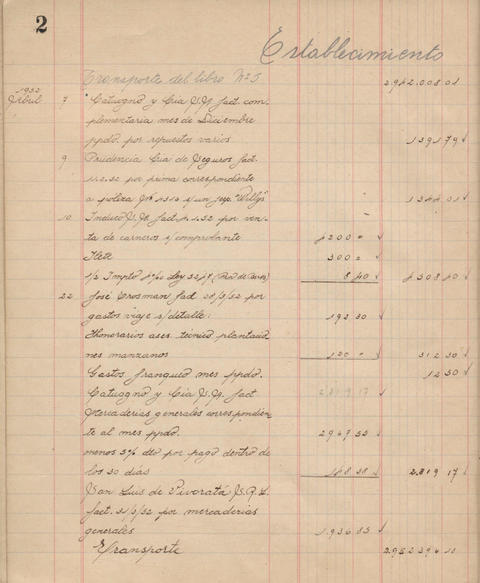 2
Establecimiento
Transporte del libro Nº5 2942.008.01
1952
Abril 7 Catuogno y Cía S.A. fact. com-
plementaria mes de Diciembre
ppdo. por repuestos varios 139179
9 Prudencia Cía de Seguros fact.
11.2.52 por prima correspondiente
a poliza s/un jeep "Willys" 134401
10 S.A. fact. 4.1.52 por ven-
ta de carneros s/comprobante 4200=
Flete 300=
Ley 840 450840
22 José Crosman fact 28/3/52 por
gastos viaje s/detalle: 19230
Honorarios ases. técnico plantacio
nes manzanos 120= 31230
Gastos franqueo mes ppdo. 1250
Catuogno y Cía S.A. fact 2.819 17
Mercaderías generales correspondien
te al mes ppdo. 296755
menos 5% dto por pago dentro de
los 30 días 14838 2.819 17
San Luis de S.R.L.
fact. 31/3/52 por mercaderias
generales 1.93683
Transporte 2952396